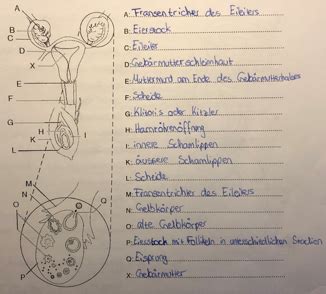 A: Fransentrichter des Eileiters
B: Eierstock
C: Eileiter
D: Gebärmutterschleimhaut
E: Muttermund am Ende des Gebärmutterhalses
F: Scheide
G: Klitoris oder Kitzler
H: Harnröhrenöffnung
I: innere Schamlippen
K: äussere Schamlippen
L: Scheide
M: Fransentrichter des Eileiters
N: Gelbkörper
O: alte Gelbkörper
P: Eierstock mit Follikeln in unterschiedlichen
Q: Eisprung
X: Gebärmutter
A
B
C
D
X
E
F
G
H
I
K
L
M
N
O
Q
P